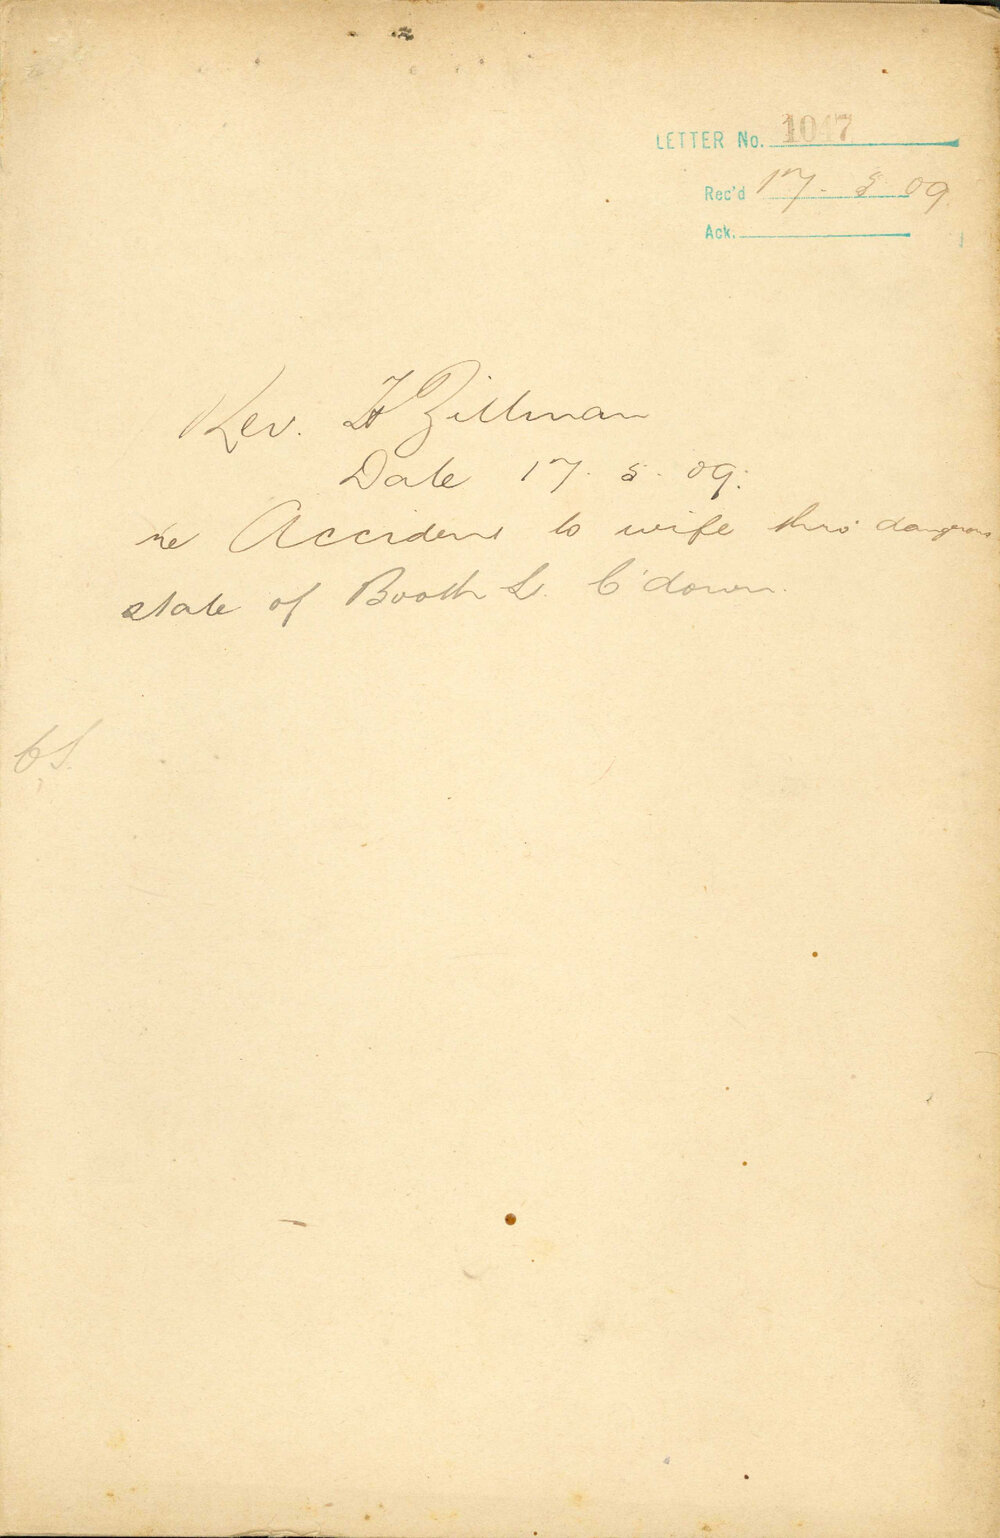 LETTER No. 1047
Rec'd 17. 5 09
Ack.
Rev. H Zillman
Date 17. 5. 09.
re Accident to wife thro' dangerous
state of Booth St. C'down.
CS.